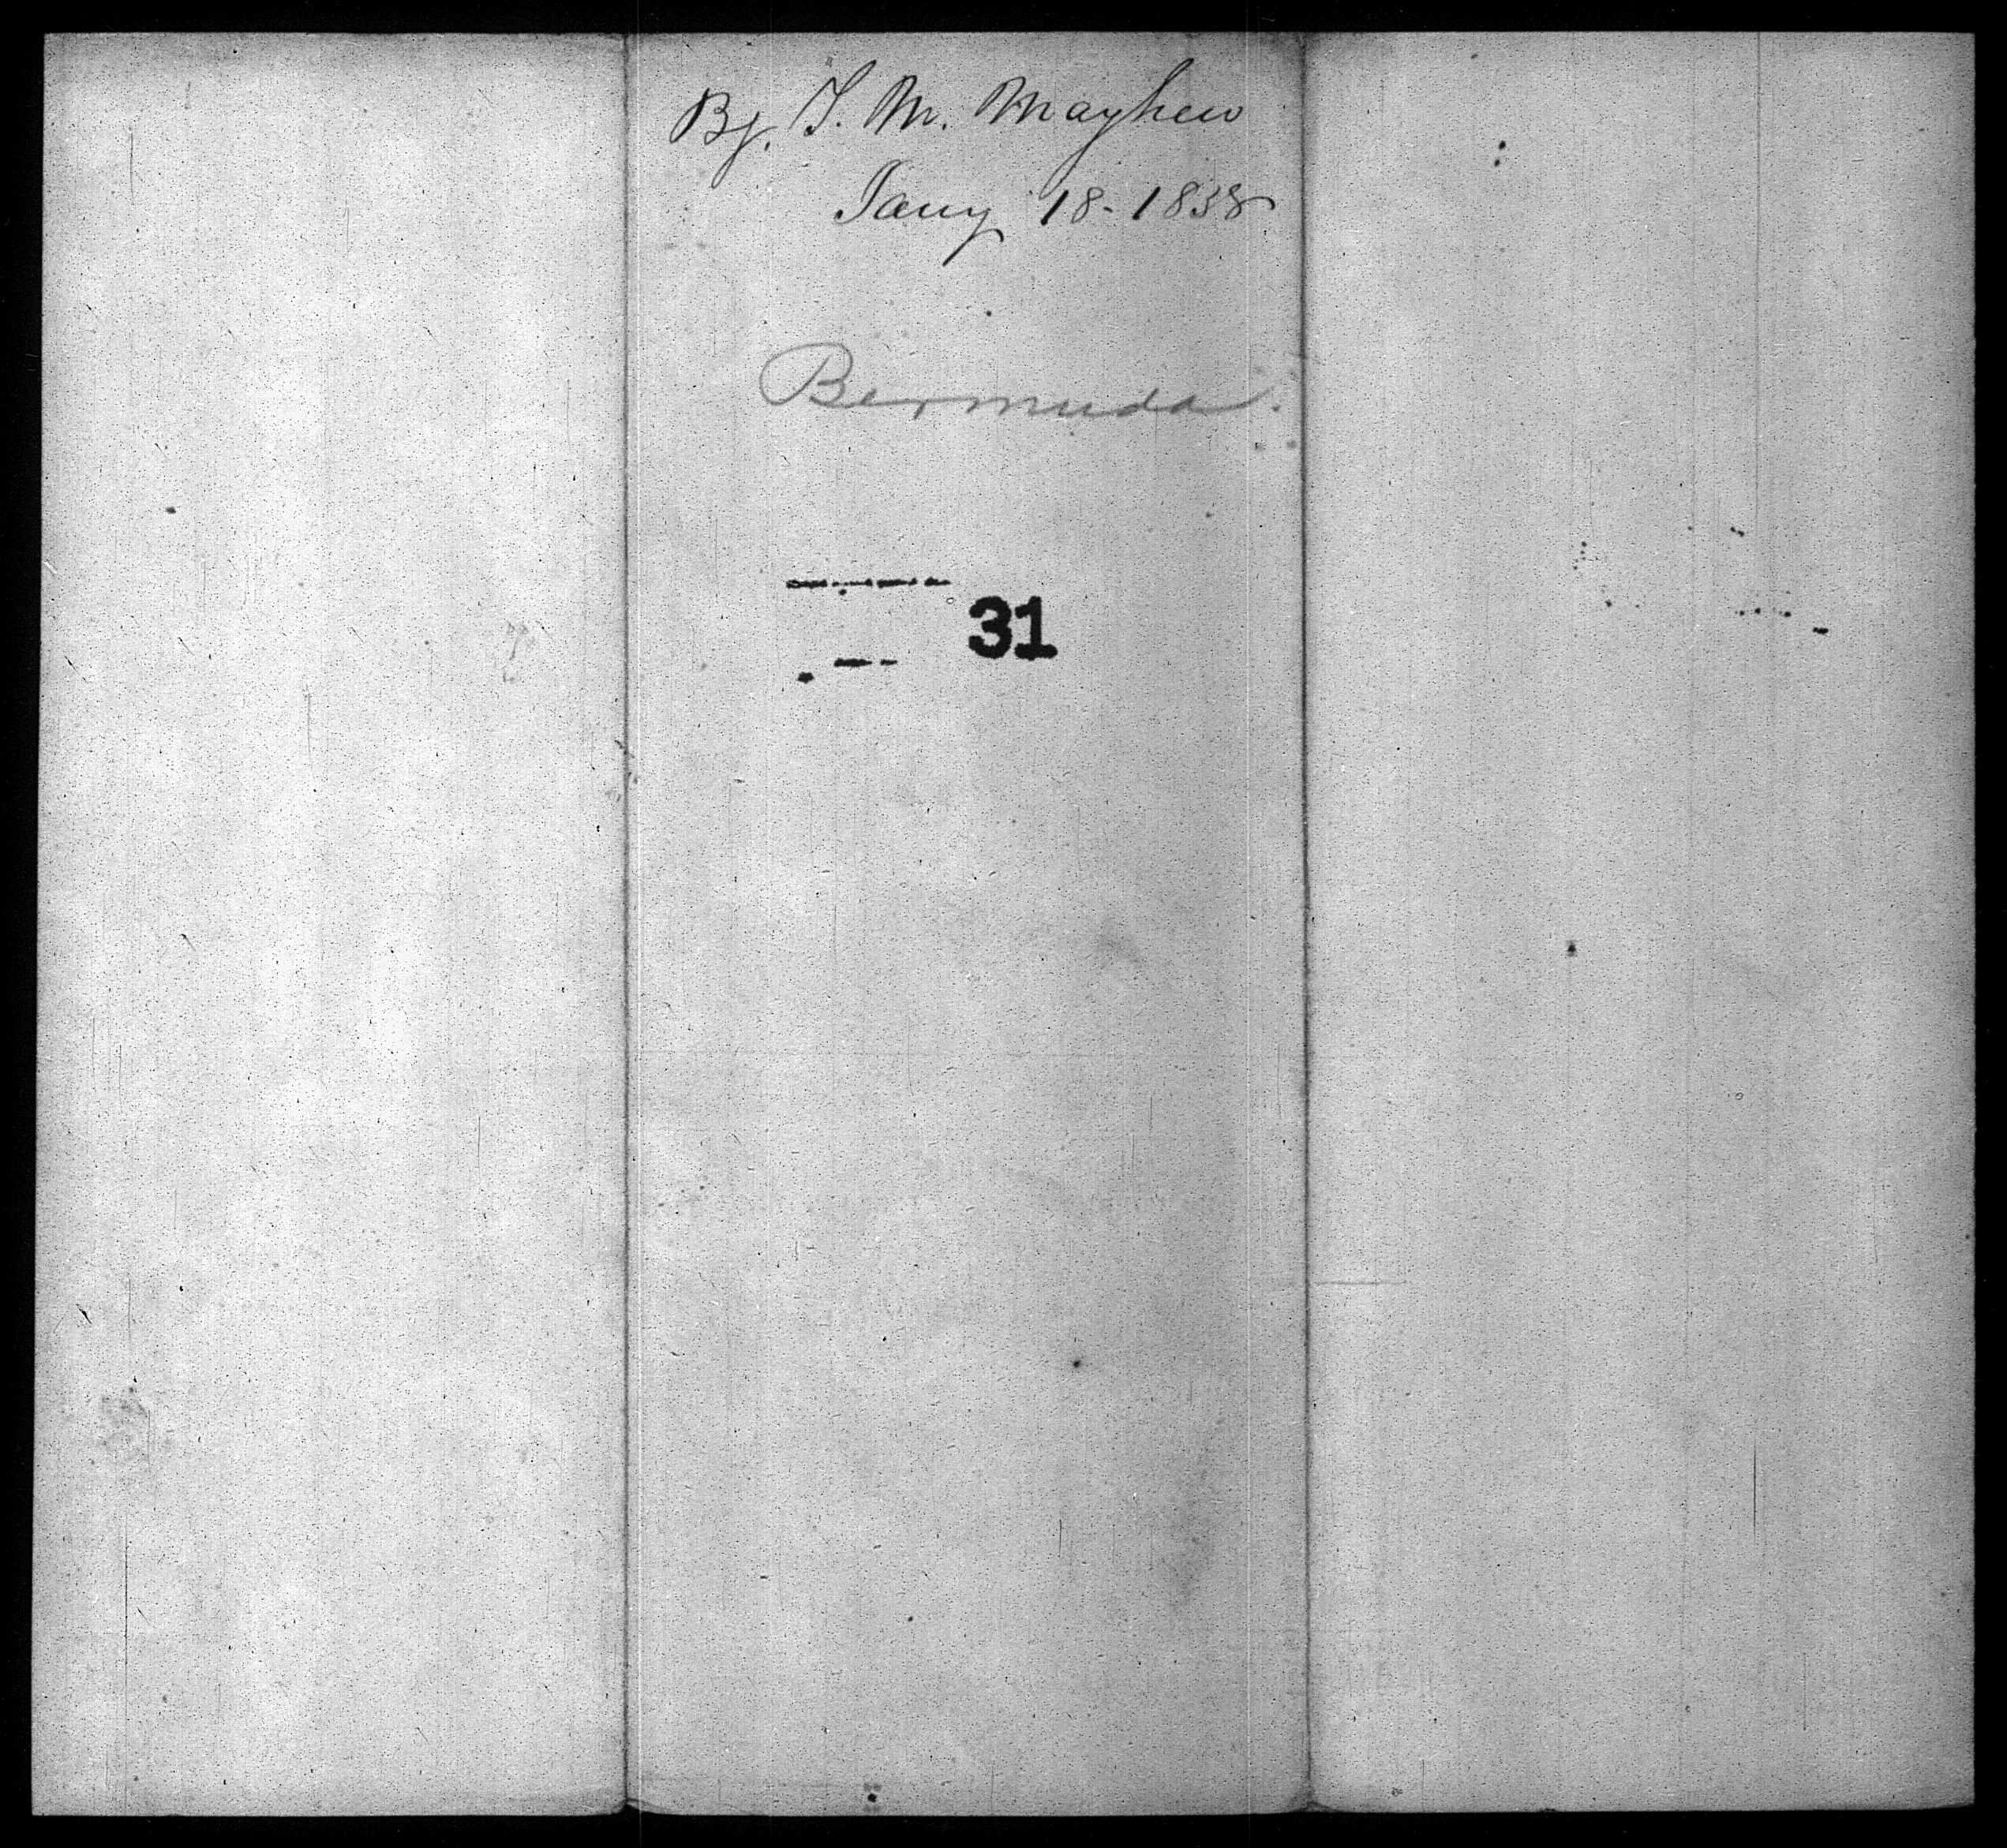 By. T. M. Mayhew
Jany 18-1838
Bermuda.
31